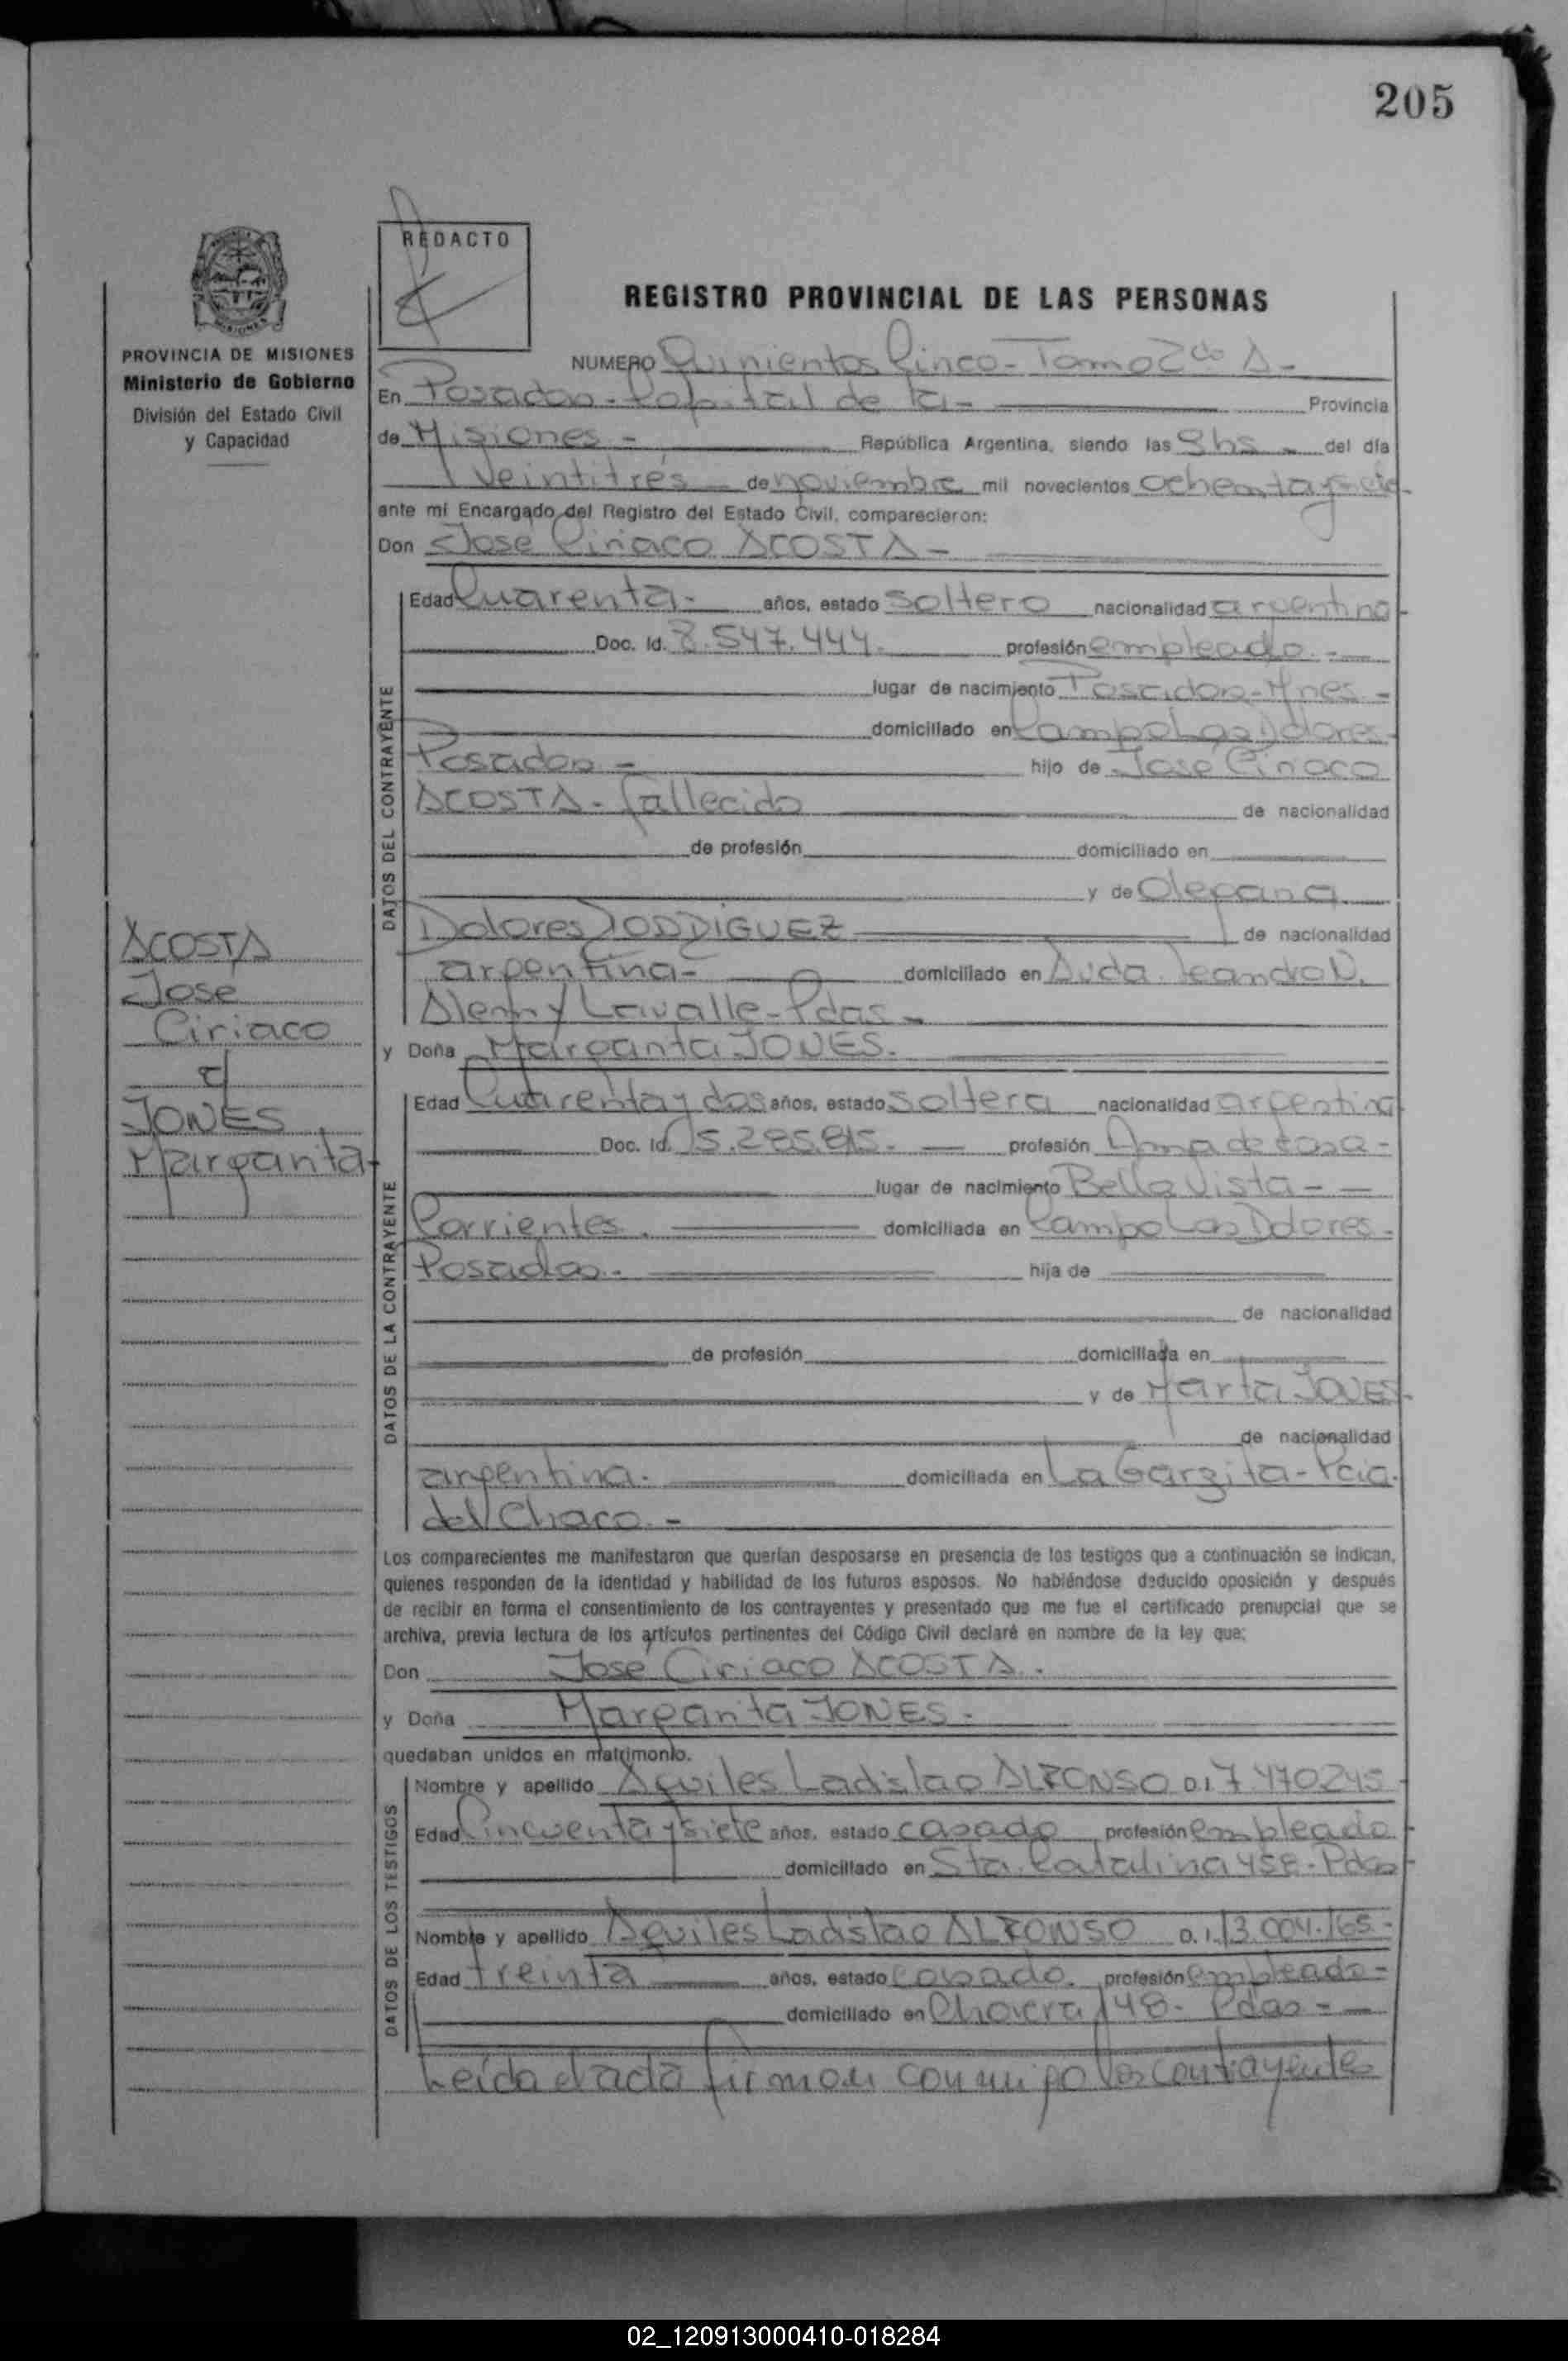 205
REDACTO
REGISTRO PROVINCIAL DE LAS PERSONAS
PROVINCIA DE MISIONES
Ministerio de Gobierno
División del Estado Civil
y Capacidad
NUMERO Quinientos Cinco - Tomo 2do A -
En Posadas - Capital de la - Provincia
de Misiones - República Argentina, siendo las 9 hs - del día
Veintitrés de noviembre mil novecientos ochenta y siete
ante mí Encargado del Registro del Estado Civil, comparecieron:
Don José Ciriaco ACOSTA -
DATOS DEL CONTRAYENTE
Edad Cuarenta - años, estado soltero nacionalidad argentina
Doc. Id. 8.547.444. profesión empleado. -
lugar de nacimiento Posadas - Mnes -
domiciliado en Campo Las Dolores
Posadas - hijo de José Ciriaco
ACOSTA - fallecido de nacionalidad
de profesión domiciliado en
y de Olegaria
Dolores RODRIGUEZ de nacionalidad
argentina - domiciliado en Avda. Leandro N.
Alem y Lavalle - Pdas -
y Doña Margarita JONES.
ACOSTA
Jose
Ciriaco
c/
JONES
Margarita
DATOS DE LA CONTRAYENTE
Edad Cuarenta y dos años, estado soltera nacionalidad argentina
Doc. Id. 5.285.815. - profesión Ama de casa -
lugar de nacimiento Bella Vista - -
Corrientes. domiciliada en Campo Las Dolores.
Posadas - hija de
de nacionalidad
de profesión domiciliada en
y de Marta JONES -
de nacionalidad
argentina. domiciliada en La Garzita - Pcia.
del Chaco. -
Los comparecientes me manifestaron que querían desposarse en presencia de los testigos que a continuación se indican,
quienes responden de la identidad y habilidad de los futuros esposos. No habiéndose deducido oposición y después
de recibir en forma el consentimiento de los contrayentes y presentado que me fue el certificado prenupcial que se
archiva, previa lectura de los artículos pertinentes del Código Civil declaré en nombre de la ley que:
Don José Ciriaco ACOSTA.
y Doña Margarita JONES -
quedaban unidos en matrimonio.
DATOS DE LOS TESTIGOS
Nombre y apellido Aquiles Ladislao ALFONSO D.I. 7.470245
Edad Cincuenta y siete años, estado casado profesión empleado
domiciliado en Sta. Catalina 458 - Pdas
Nombre y apellido Aquiles Ladislao ALFONSO D.I. 13.004.165 -
Edad treinta años, estado casado. profesión empleado -
domiciliado en 148 - Pdas -
Leída el acta firman conmigo los contrayentes
02_120913000410-018284